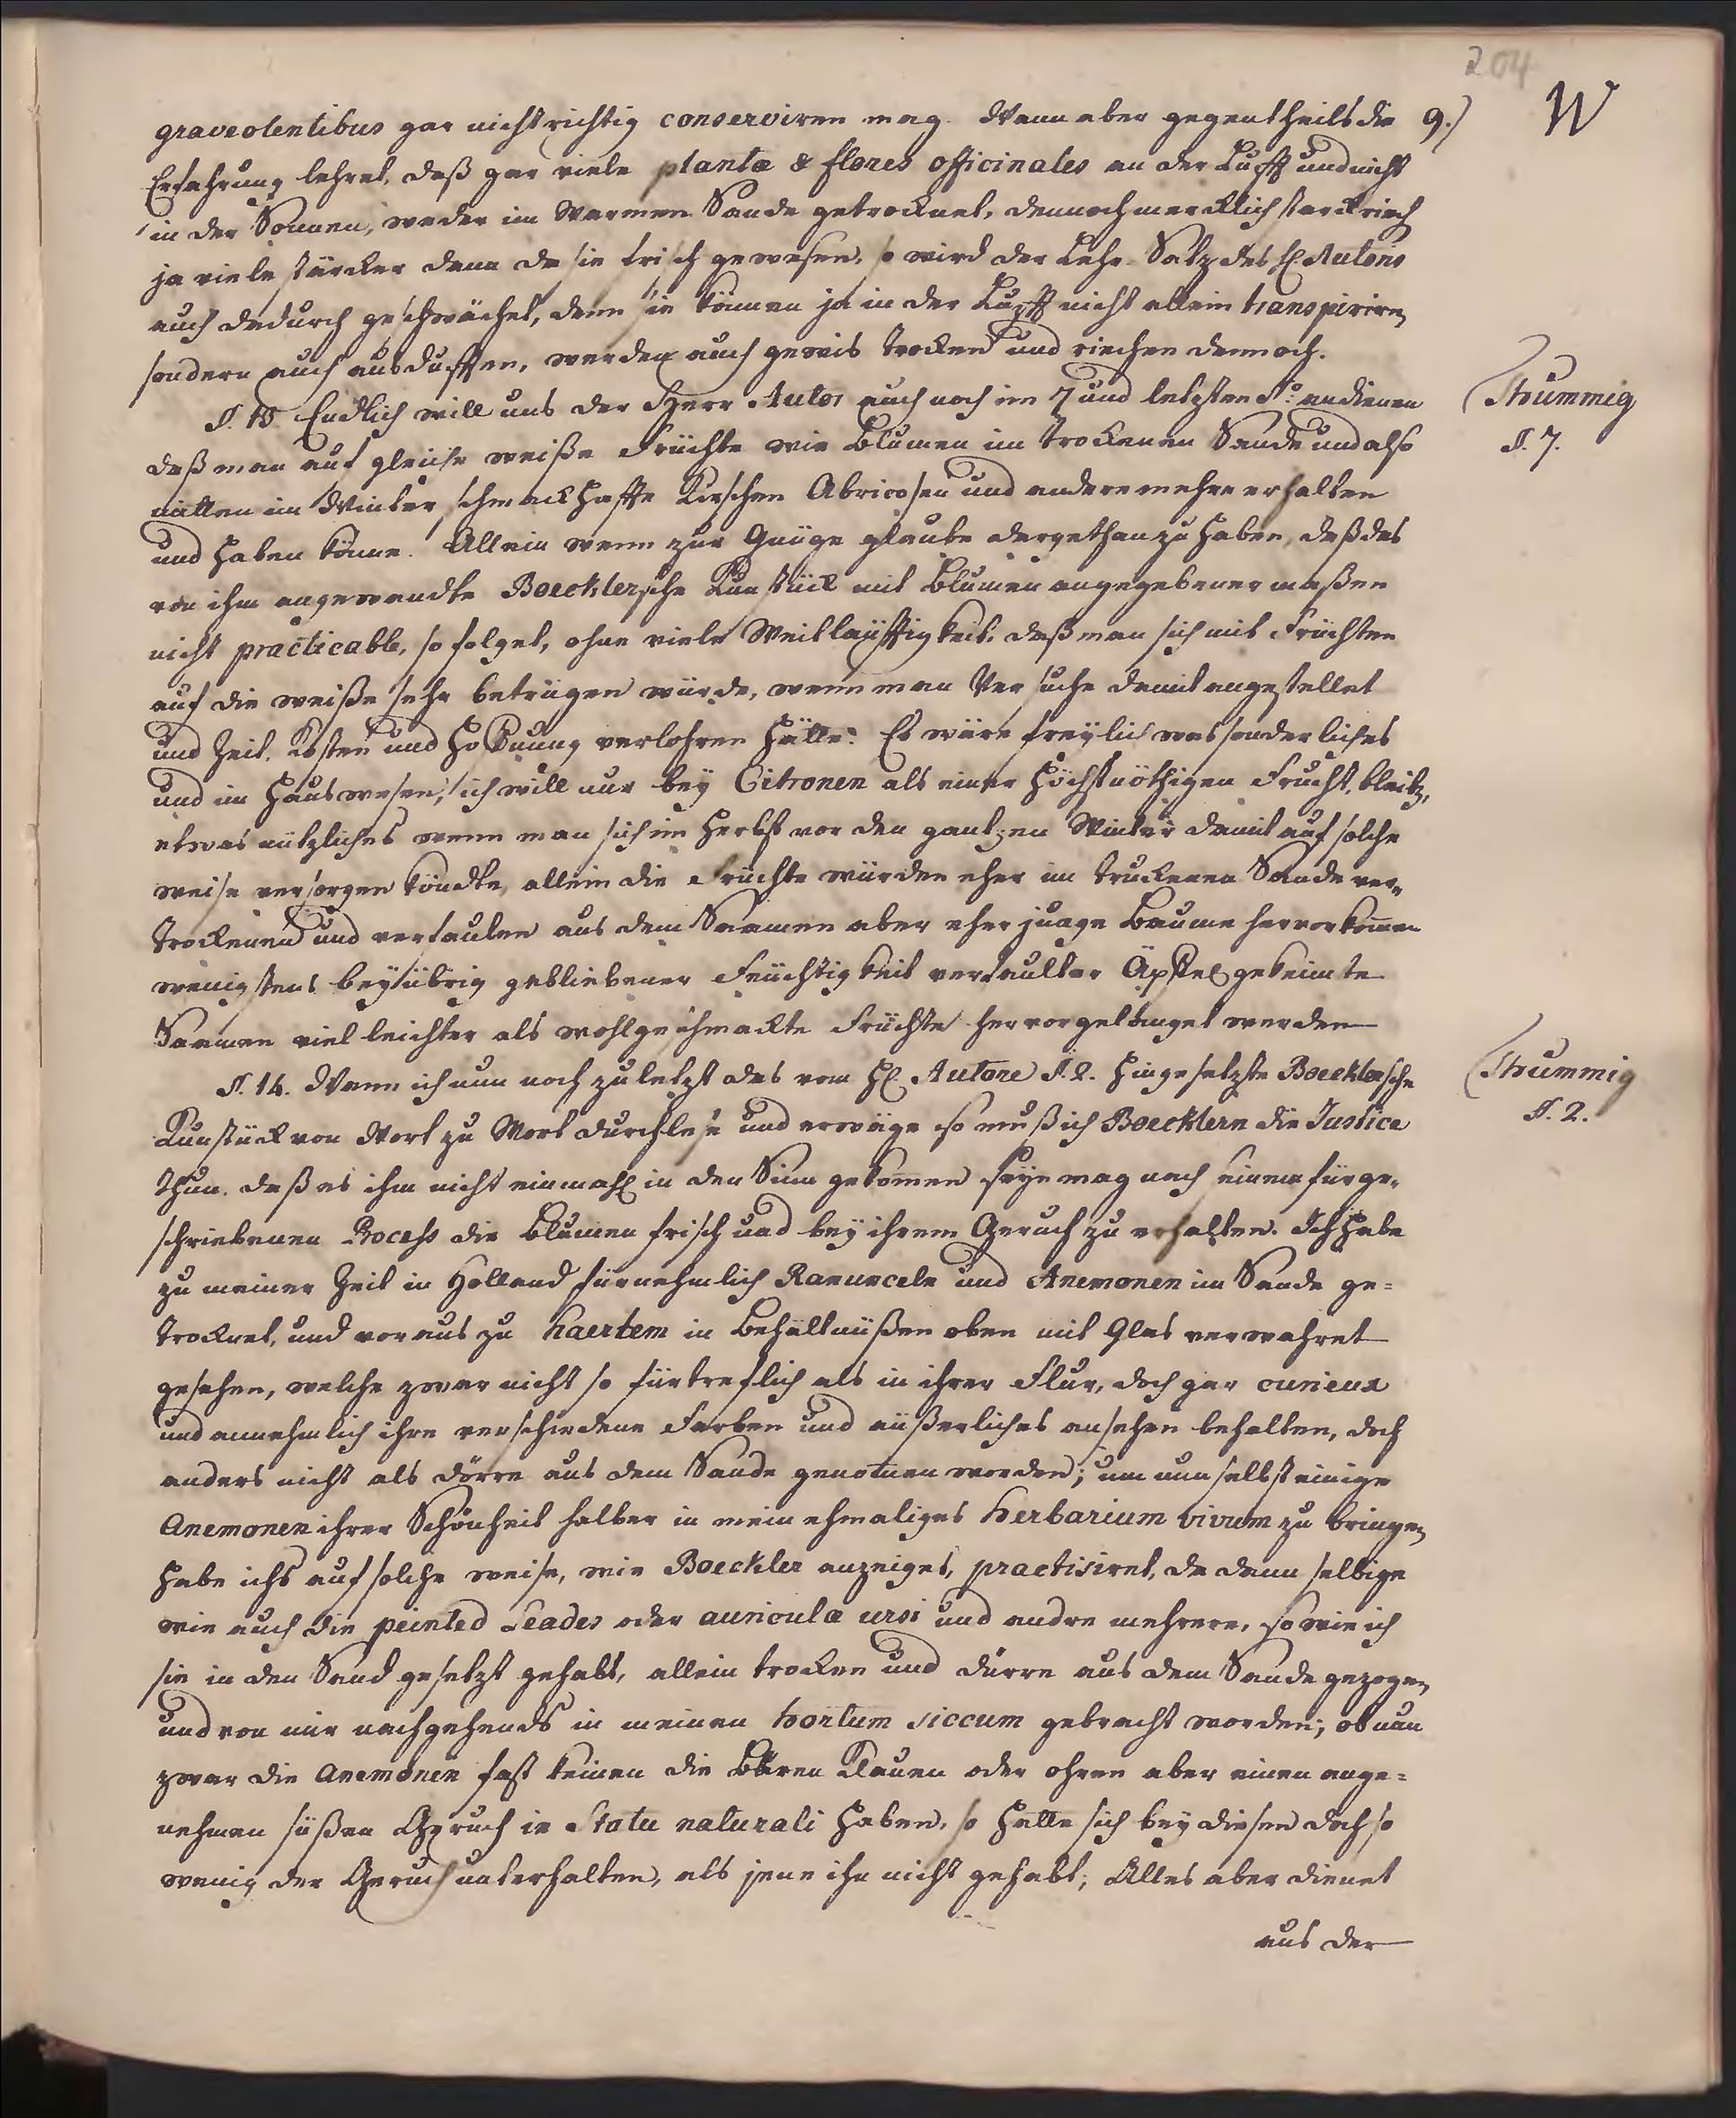 204
W
graveolentibus gar nicht richtig conserviren mag. Wann aber gegentheils die 9.)
Erfahrung lehret, daß gar viele plantæ & flores officinales an der Lufft und nicht
in der Sonnen, weder im warmen Sande getrocknet, dennoch mercklich starck riech
ja viele stärcker denn da sie frisch gewesen, so wird der Lehr-Satz des H Autons
auch dadurch geschwächet, denn sie können ja in der Lufft nicht allein transpiriren,
sondern auch ausdufften, werden auch gewis trocken und riechen dennoch.
§. 10 Endlich will uns der Herr Autor auch noch im 7 und letzten §º. andienen
Thummig
§. 7.
daß man auf gleiche weiße Früchte wie Blumen im trockenen Sande und also
mitten im Winter schmackhaffte Kirschen Abricosen und andere mehre erhalten
und haben könne. Allein wenn zur Gnüge glaube dargethan zu haben, daß das
von ihm angewandte Boecklersche Kunstück mit Blumen angegebener maßen
nicht practicable, so folget, ohne viele Weitläufftigkeit, daß man sich mit Früchten
auf die weiße sehr betrügen würde, wenn man Versuche damit angestellet
und Zeit, Kosten und Hoffnung verlohren hätte. Es wäre freylich was sonderliches
und im Hauswesen, ich will nur bey Citronen als einer höchstnöthigen Frucht, bleiben,
etwas nützliches wenn man sich im Herbst vor den gantzen Winter damit auf solche
weise versorgen köndte, allein die Früchte würden eher im truckenen Sande ver-
trockenen und verfaulen aus dem Saamen aber eher junge Baume hervorkomen
wenigstens bey übrig gebliebener Feuchtigkeit verfaulter Äpffel gekeimte
Saamen viel leichter als wohlgeschmackte Früchte hervorgelanget werden
§. 14. Wann ich nun noch zuletzt das vom H Autore §. 2. hingesetzte Boecklersche
Thummig
§. 2.
Kunstück von Wort zu Wort durchlese und erwäge so muß ich Boecklern die Justice
thun, daß es ihm nicht einmahl in den Sinn gekomen seyn mag nach seinem fürge-
schriebenen Process die Blumen frisch und bey ihrem Geruch zu erhalten. Ich habe
zu meiner Zeit in Holland fürnehmlich Ranunceln und Anemonen im Sande ge-
trocknet, und voraus zu Haerlem in Behältnüßen oben mit Glas verwahret
gesehen, welche zwar nicht so fürtreflich als in ihrer Flur, doch gar curieux
und annehmlich ihre verschiedene Farben und äußerliches ansehen behalten, doch
anders nicht als dörre aus dem Sande genomen worden; um nun selbst einige
Anemonen ihrer Schönheit halber in mein ehmaliges Herbarium vivum zu bringen,
habe ichs auf solche weise, wie Boeckler anzeiget, practisiret, da denn selbige
wie auch die peinted Leades oder auriculæ ursi und andre mehrere, so wie ich
sie in den Sand gesetzt gehabt, allein trocken und dürre aus dem Sande gezogen,
und von mir nachgehends in meinen hortum siccum gebracht worden; ob nun
zwar die Anemonen fast keinen die Bären Klauen oder ohren aber einen ange-
nehmen süßen Geruch in Statu naturali haben, so hatte sich bey diesen doch so
wenig der Geruch unterhalten, als jene ihn nicht gehabt; Alles aber dienet
aus der